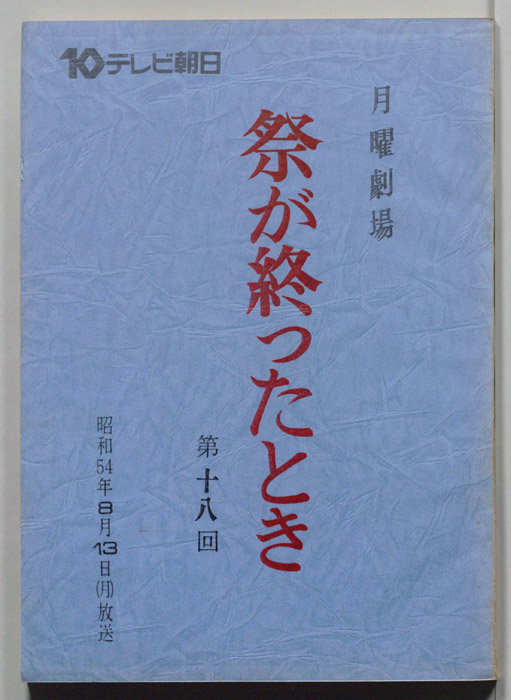 10テレビ朝日
月曜劇場
祭が終ったとき
第十八回
昭和54年8月13日(月)放送